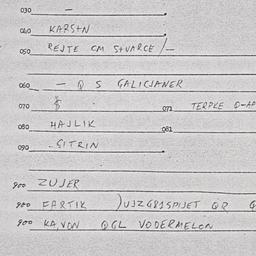 030 —
040 KARSTN
050 REJTE CM STVARCE /—
060 — Q S GALICJANER
070 073 TERPKE D-AP
080 HAJLIK 081
090 SITRIN
900 ZUJER
900 FARTIK
900 KA,VON QGL VODERMELON